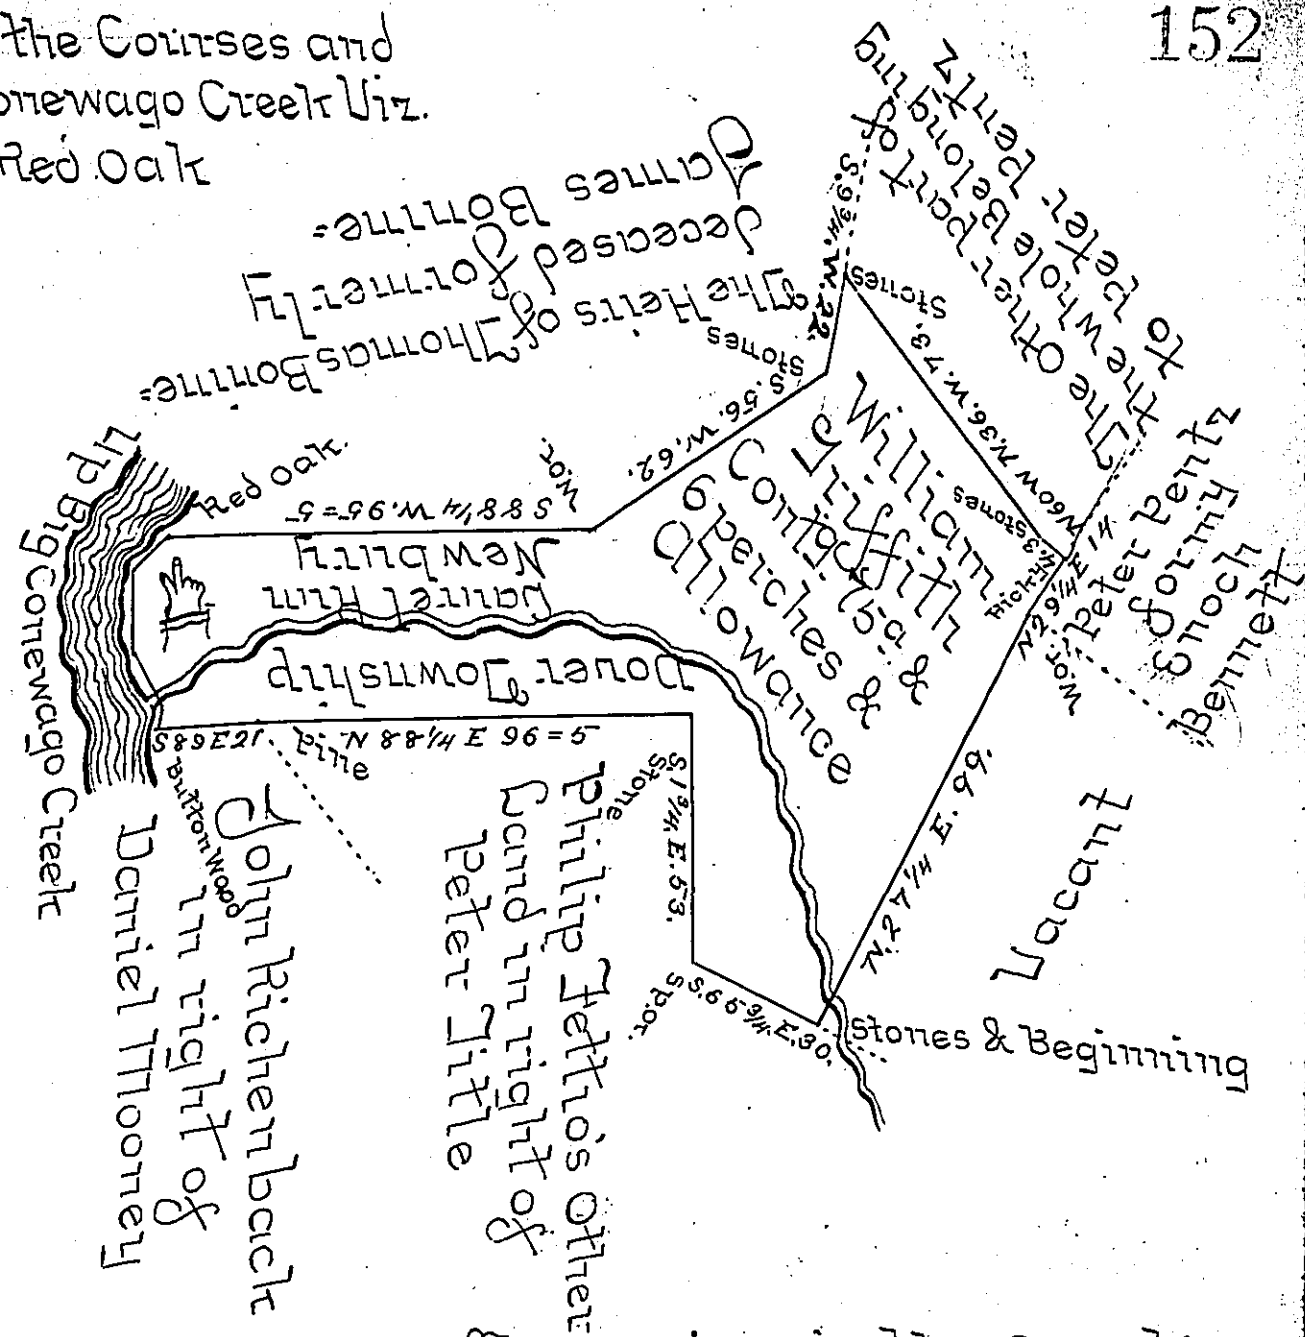 152
the Courses and
onewago Creek Viz.
Red Oak
James Bonine=
deceased formerly
The Heirs of Thomas Bonine=
The other part of
the whole Belonging
to Peter Pentz
S. 9 3/4. W. 22.
Stones
Stones
S. 56. W. 62.
N. 36. W. 73.
Up Big Conewago Creek
Red Oak.
S 88 1/4 W. 95=5
W.or.
Newbury
Laurel Run
Dover Township
William
Griffith
Contg 75a &
6 perches &
Allowance
Stones
N60W
34.3
Hicky
N 29 1/4 E 14.
W.or.
Peter Pentz
formy
Enoch
Bennett
S89E21.
Pine
N 88 1/4 E 96=5
Button Wood
Stone
S. 1 3/4. E. 53.
N. 27 1/4 E. 99.
Vacant
Sp.or.
S. 65 3/4. E. 30.
Stones & Beginning
John Richenback
in right of
Daniel Mooney
Philip Fettro's Other
Land in right of
Peter Title